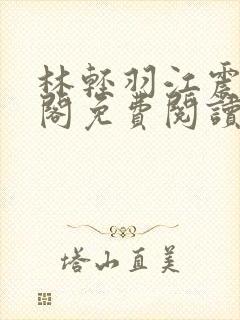 林輕羽江震
閣免費閱讀
塔山直美